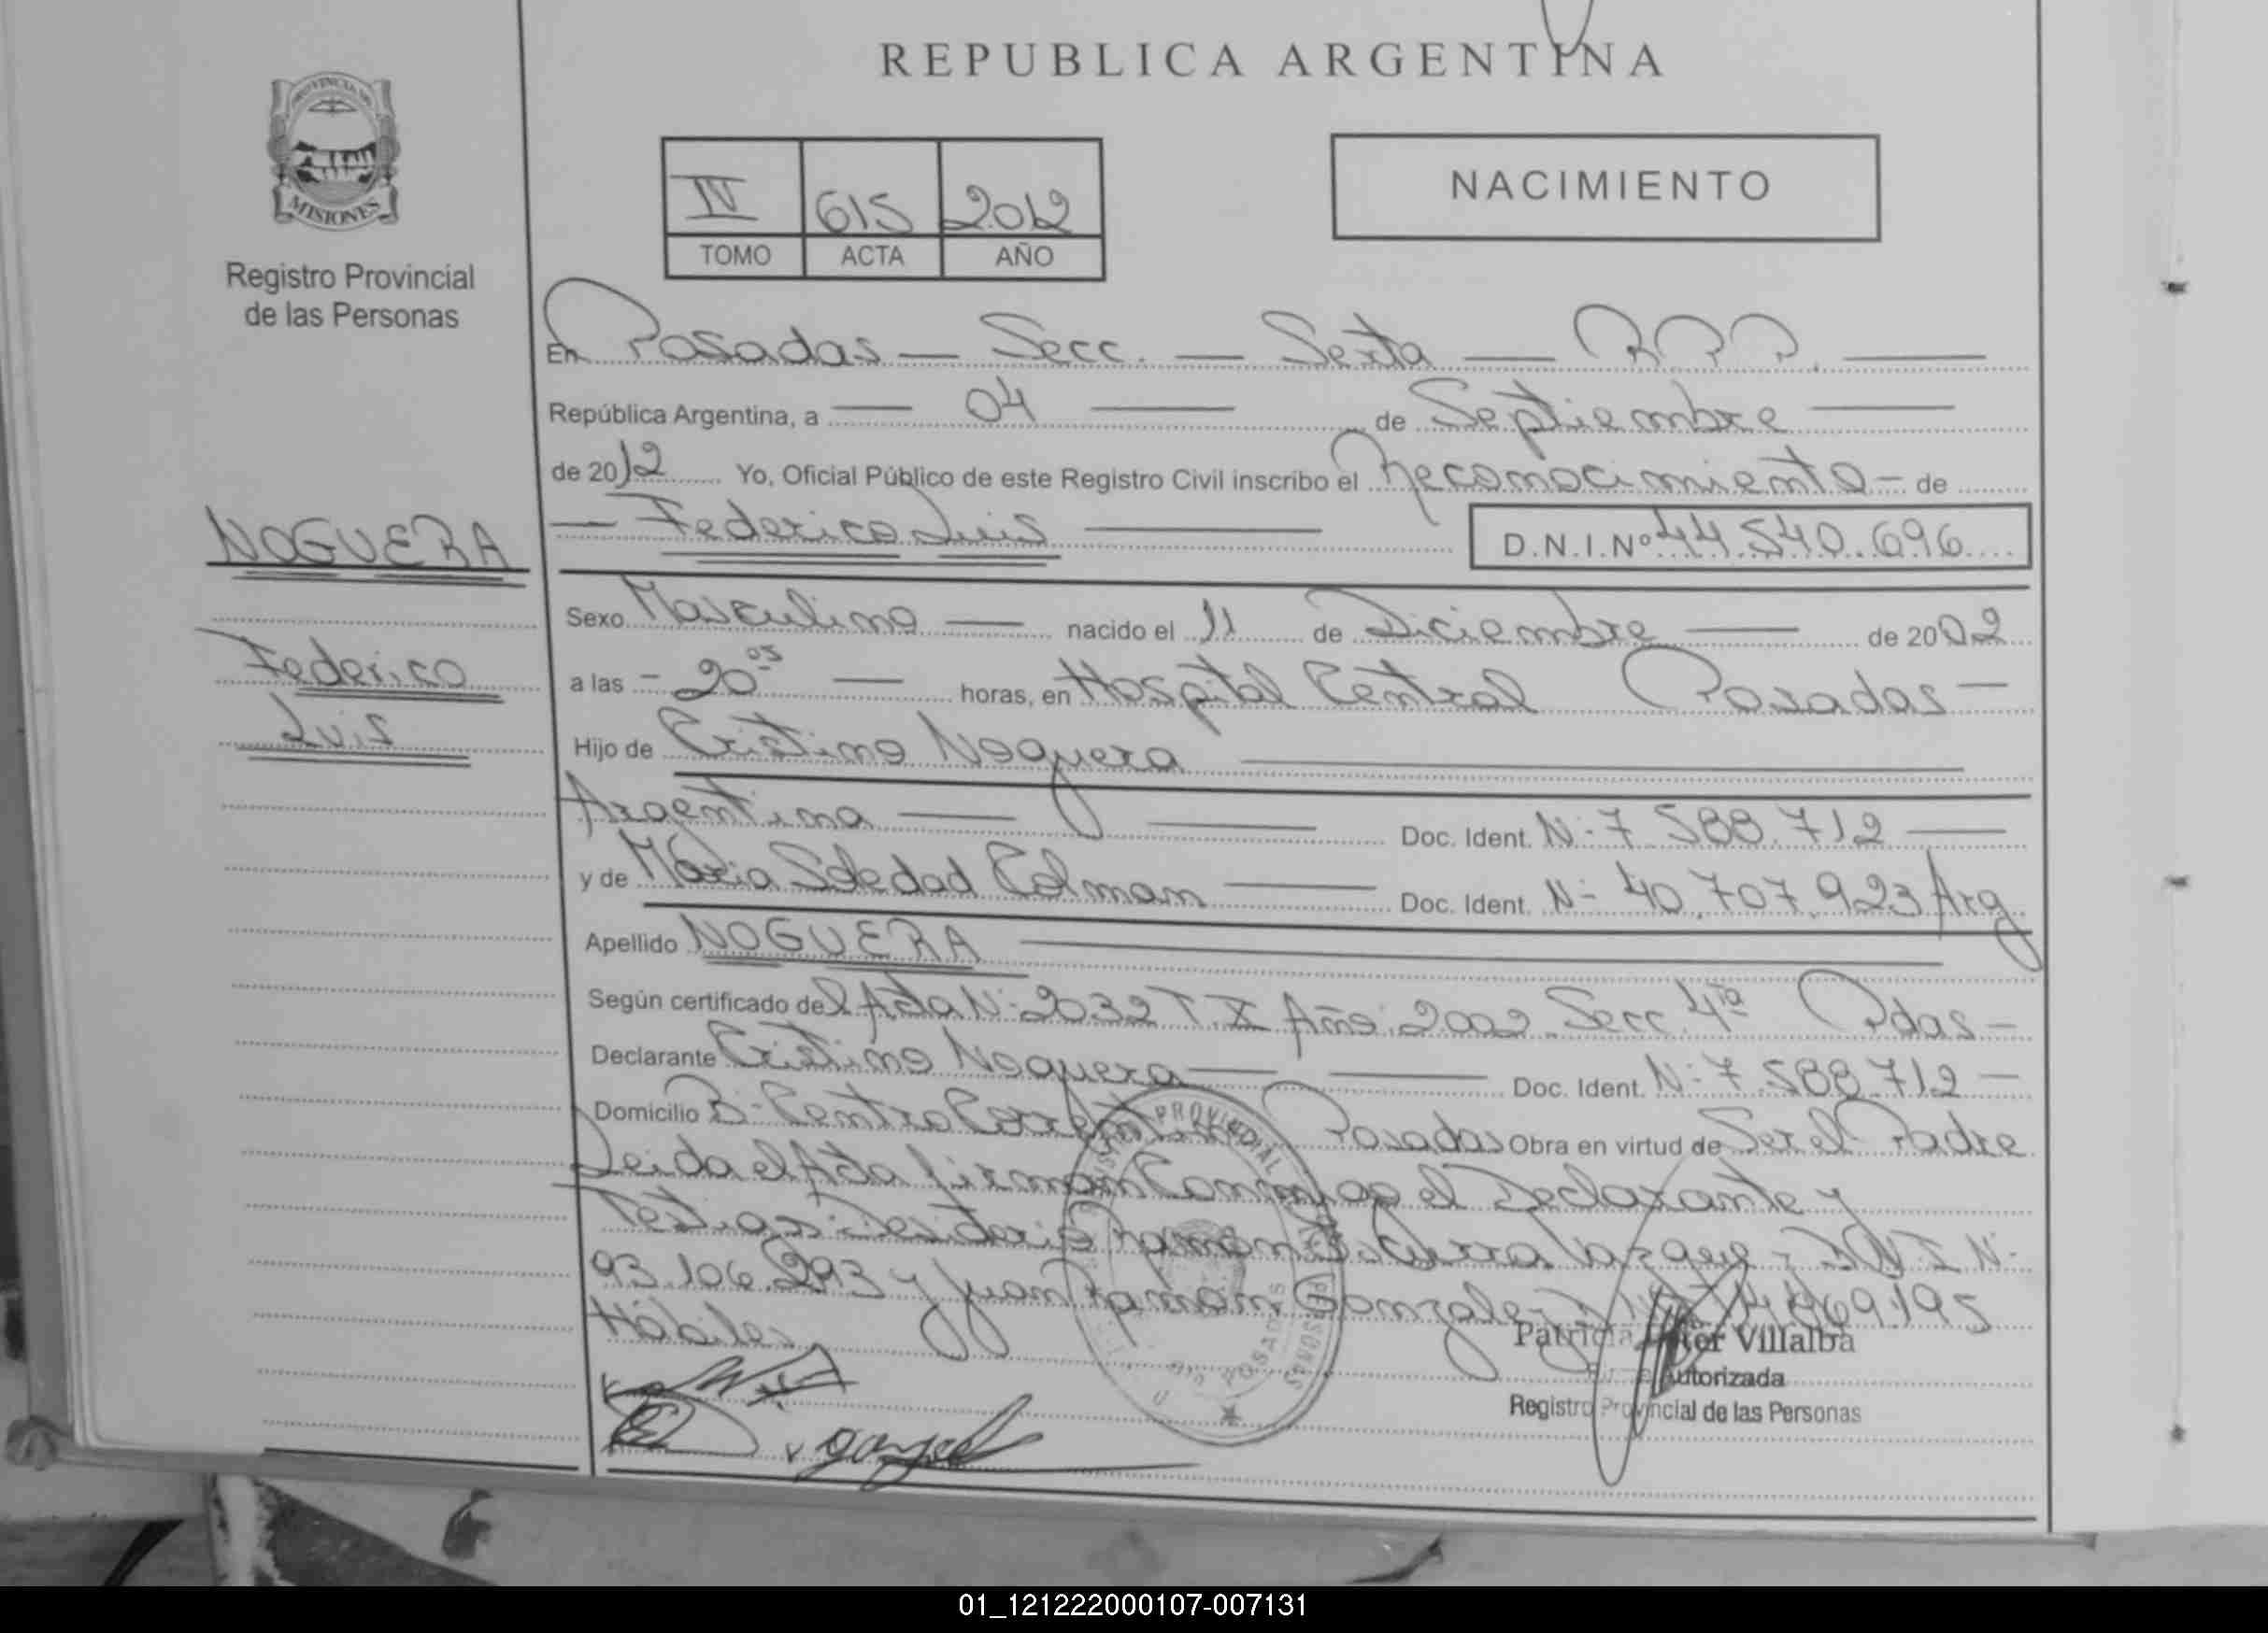 REPUBLICA ARGENTINA
PROVINCIA DE
MISIONES
Registro Provincial
de las Personas
IV 615 2012
TOMO ACTA AÑO
NACIMIENTO
En Posadas — Secc. — Sexta — R.P.P. —
República Argentina, a — 04 — de Septiembre —
de 2012 Yo, Oficial Público de este Registro Civil inscribo el Reconocimiento - de
— Federico Luis —
D.N.I.Nº 44.540.696
NOGUERA
Federico
Luis
Sexo Masculino — nacido el 11 de Diciembre — de 2002
a las - 20 05 — horas, en Hospital Central Posadas —
Hijo de Cristino Noguera —
Argentino — — Doc. Ident. N: 7.588.712 —
y de María Soledad Colman — Doc. Ident. N- 40.707.923 Arg
Apellido NOGUERA —
Según certificado del Acta N: 2032 T. X Año 2002 Secc 4ta Pdas —
Declarante Cristino Noguera — — Doc. Ident. N: 7.588.712 —
Domicilio B- Centro Posadas Obra en virtud de Ser el Padre
Leida el Acta firman Conmigo el Declarante y
Testigos: Ramon Vazque - DNI N-
93.106.293 y Juan Ramon Gonzalez
Hábiles
PROVINCIAL
POSADAS
PERSONAS
Patricia Villalba
Autorizada
Registro Provincial de las Personas
01_121222000107-007131